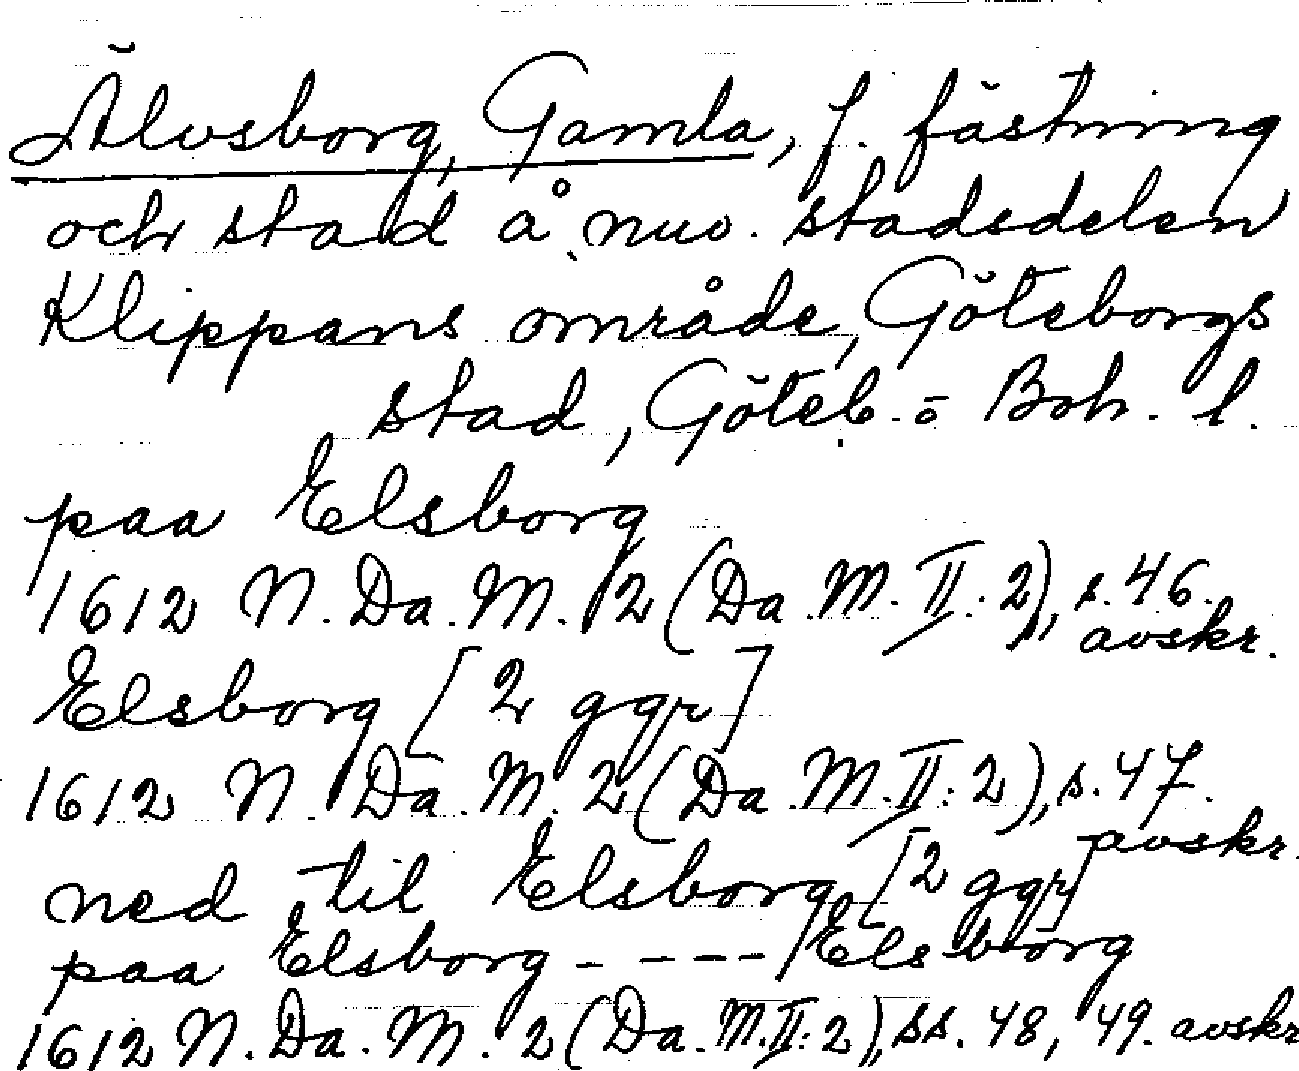 Älvsborg, Gamla, f. fästning
och stad å nuv. stadsdelen
Klippans område, Göteborgs
stad, Göteb. o Boh. l.
paa Elsborg
1612 N. Da. M. 2 (Da. M. II: 2), s. 46.
avskr.
Elsborg [2 ggr]
1612 N. Da. M. 2 (Da. M. II: 2), s. 47.
avskr.
ned til Elsborg [2 ggr]
paa Elsborg - - - - Elsborg
1612 N. Da. M. 2 (Da. M. II: 2), ss. 48, 49. avskr